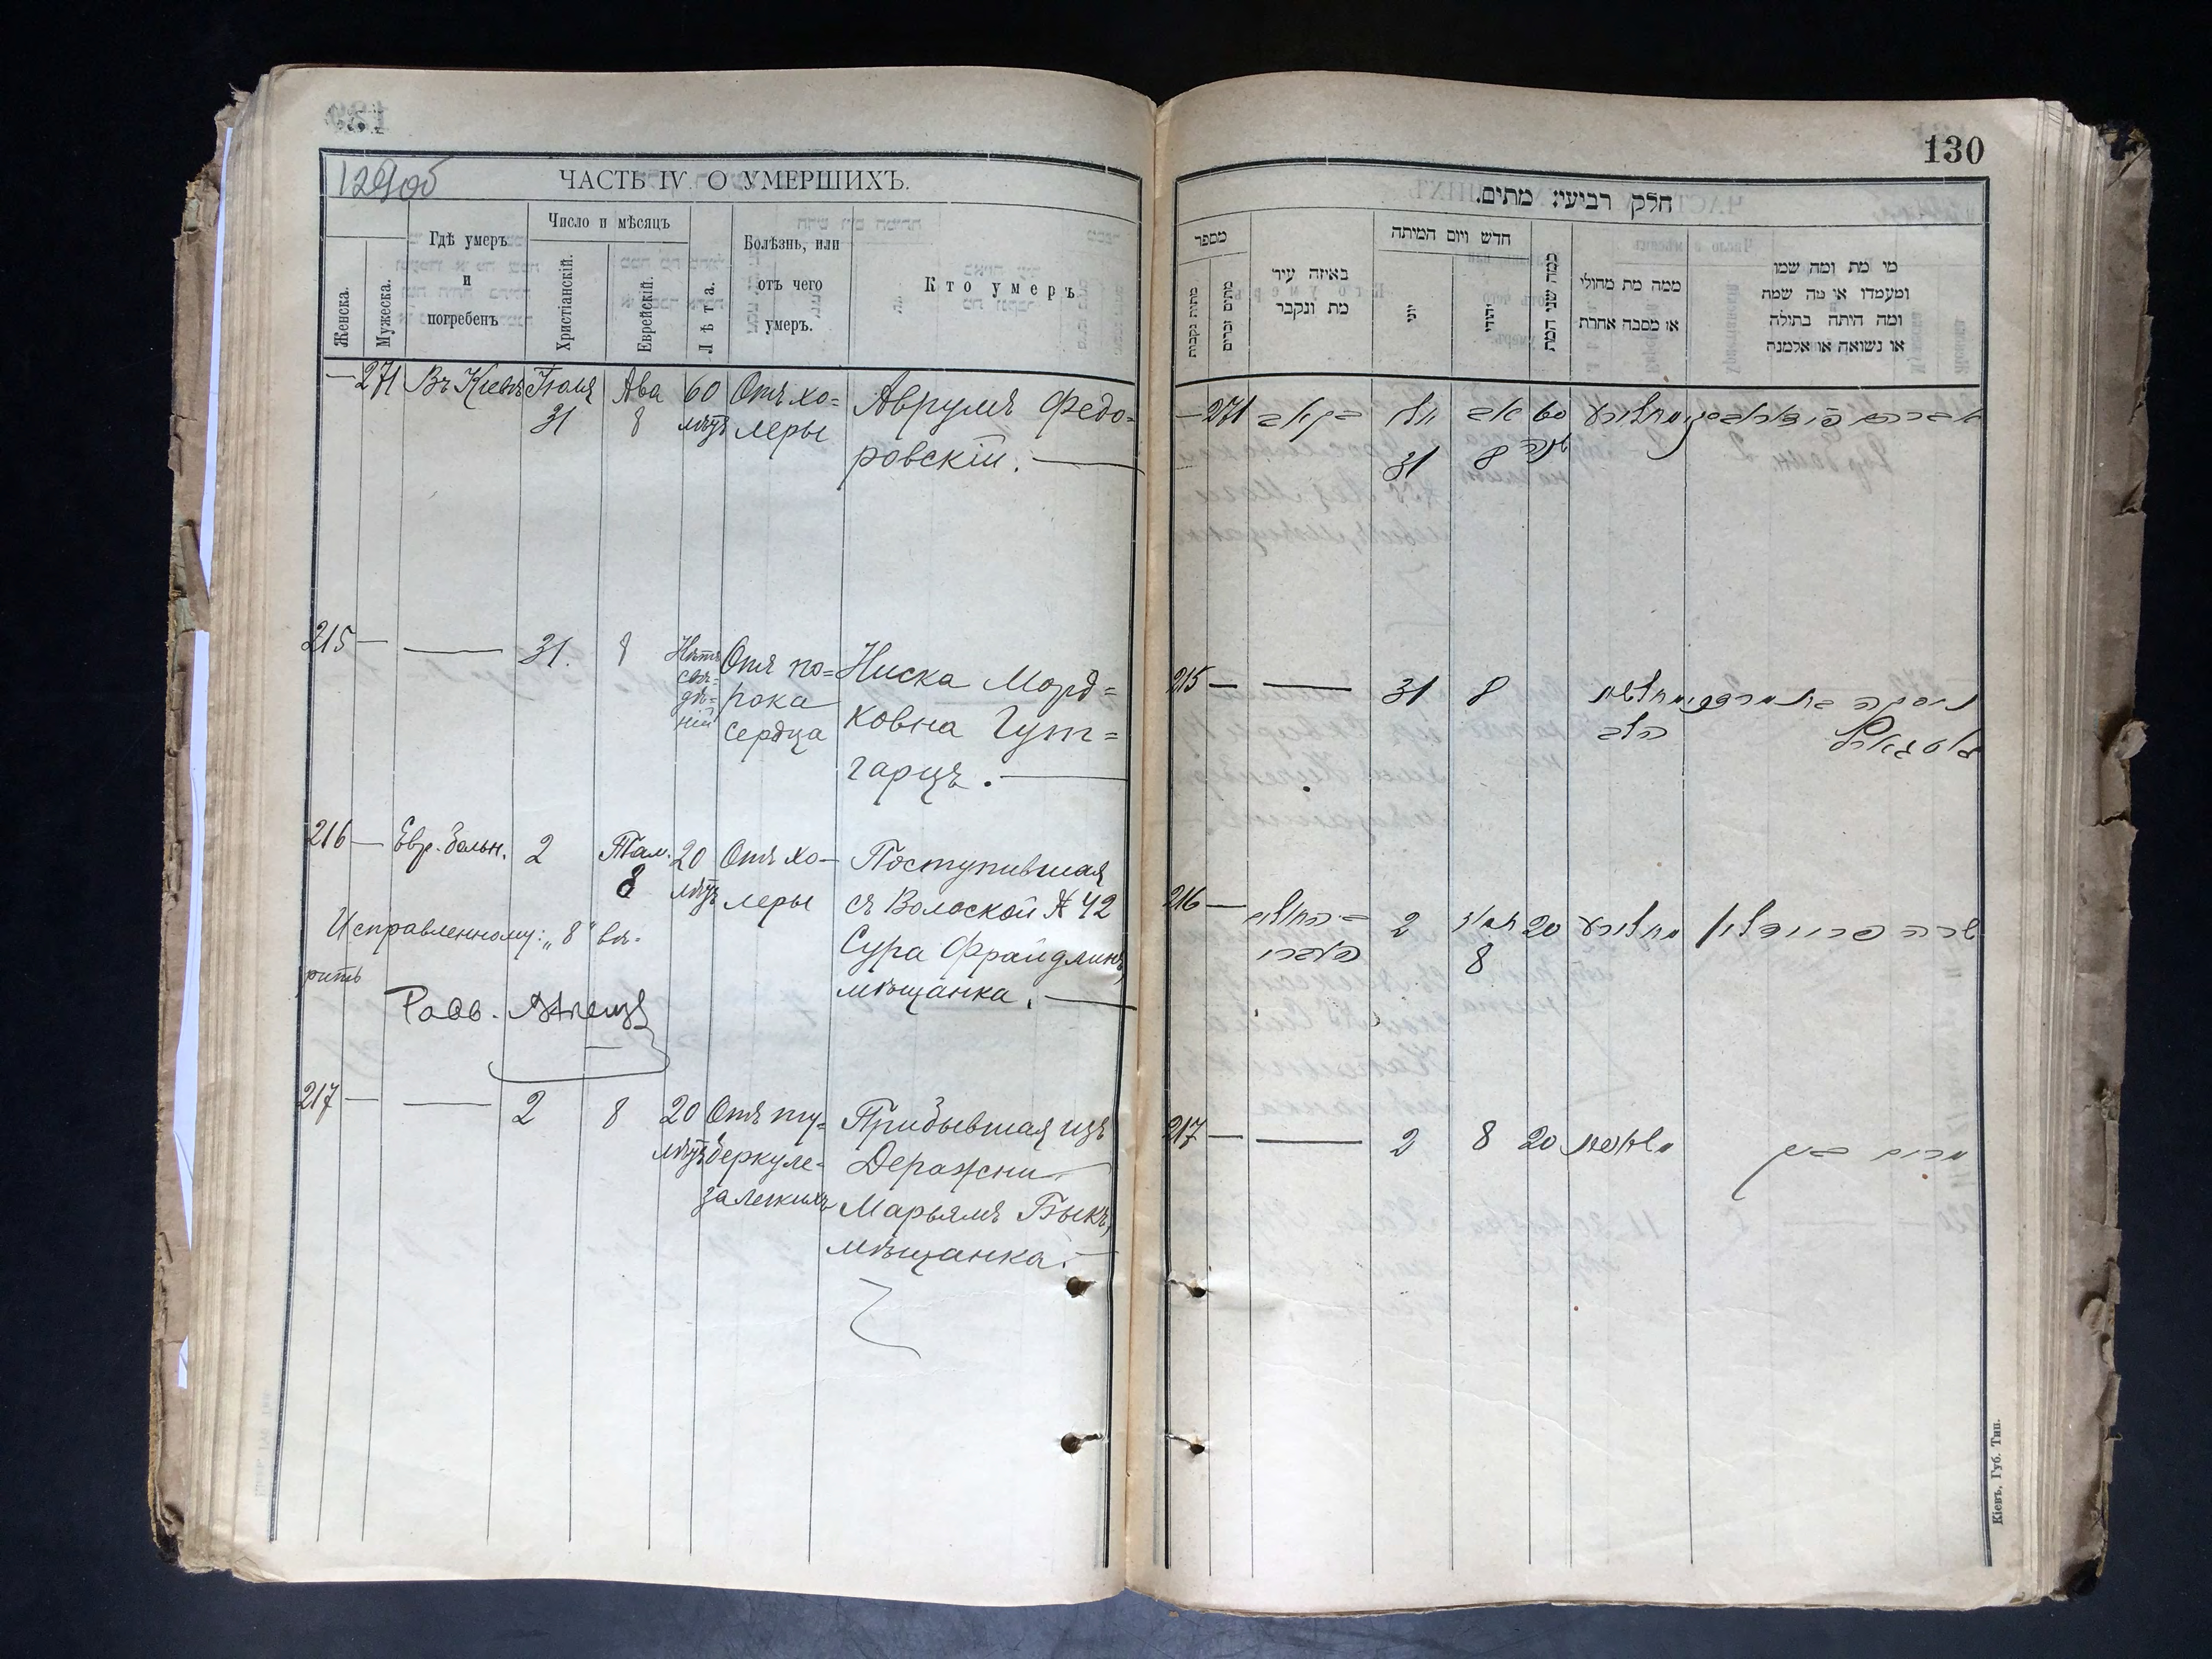 129об
ЧАСТЬ IV. О УМЕРШИХЪ.
Женска.
Мужеска.
Гдѣ умеръ
и
погребенъ
Число и мѣсяцъ
Христіанскій.
Еврейскій.
Лѣта.
Болѣзнь, или
отъ чего
умеръ.
Кто умеръ
— 271 Въ Кіевѣ Іюля 31 Ава 8 60 лѣтъ
Отъ хо=
леры
Аврумъ Федо=
ровскій. —
215 — — 31. 8
Нѣтъ
свѣ=
дѣ=
ній
Отъ по=
рока
сердца
Ниска Морд=
ковна Гут=
гарцъ. —
216 — Евр. больн. 2 Там. 8 20 лѣтъ
Отъ хо—
леры
Поступившая
съ Волоской № 42
Сура Фрайдлинъ,
мѣщанка. —
Исправленному: „8“ вѣ-
рить
Равв.
217 — — 2 8 20 лѣтъ
Отъ ту=
беркуле=
за легкихъ
Прибывшая изъ
Деражни
Марьямъ Быкъ,
мѣщанка. —
130
חלק רביעי: מתים.
מספר
מתות נקבות
מתים זכרים
באיזה עיר
מת ונקבר
חדש ויום המיתה
יוני
יהודי
כמה שני המת
ממה מת מחולי
או מסבה אחרת
מי מת ומה שמו
ומעמדו או מה שמה
ומה היתה בתולה
או נשואה או אלמנה
— 271 יולי 31 אב 8 60 שנה מחולירע
215 — — 31 8
הלב
216 — 2 תמוז 8 20 מחולירע שרה פריידלין
217 — — 2 8 20 מרים ביק
Кіевъ, Губ. Тип.